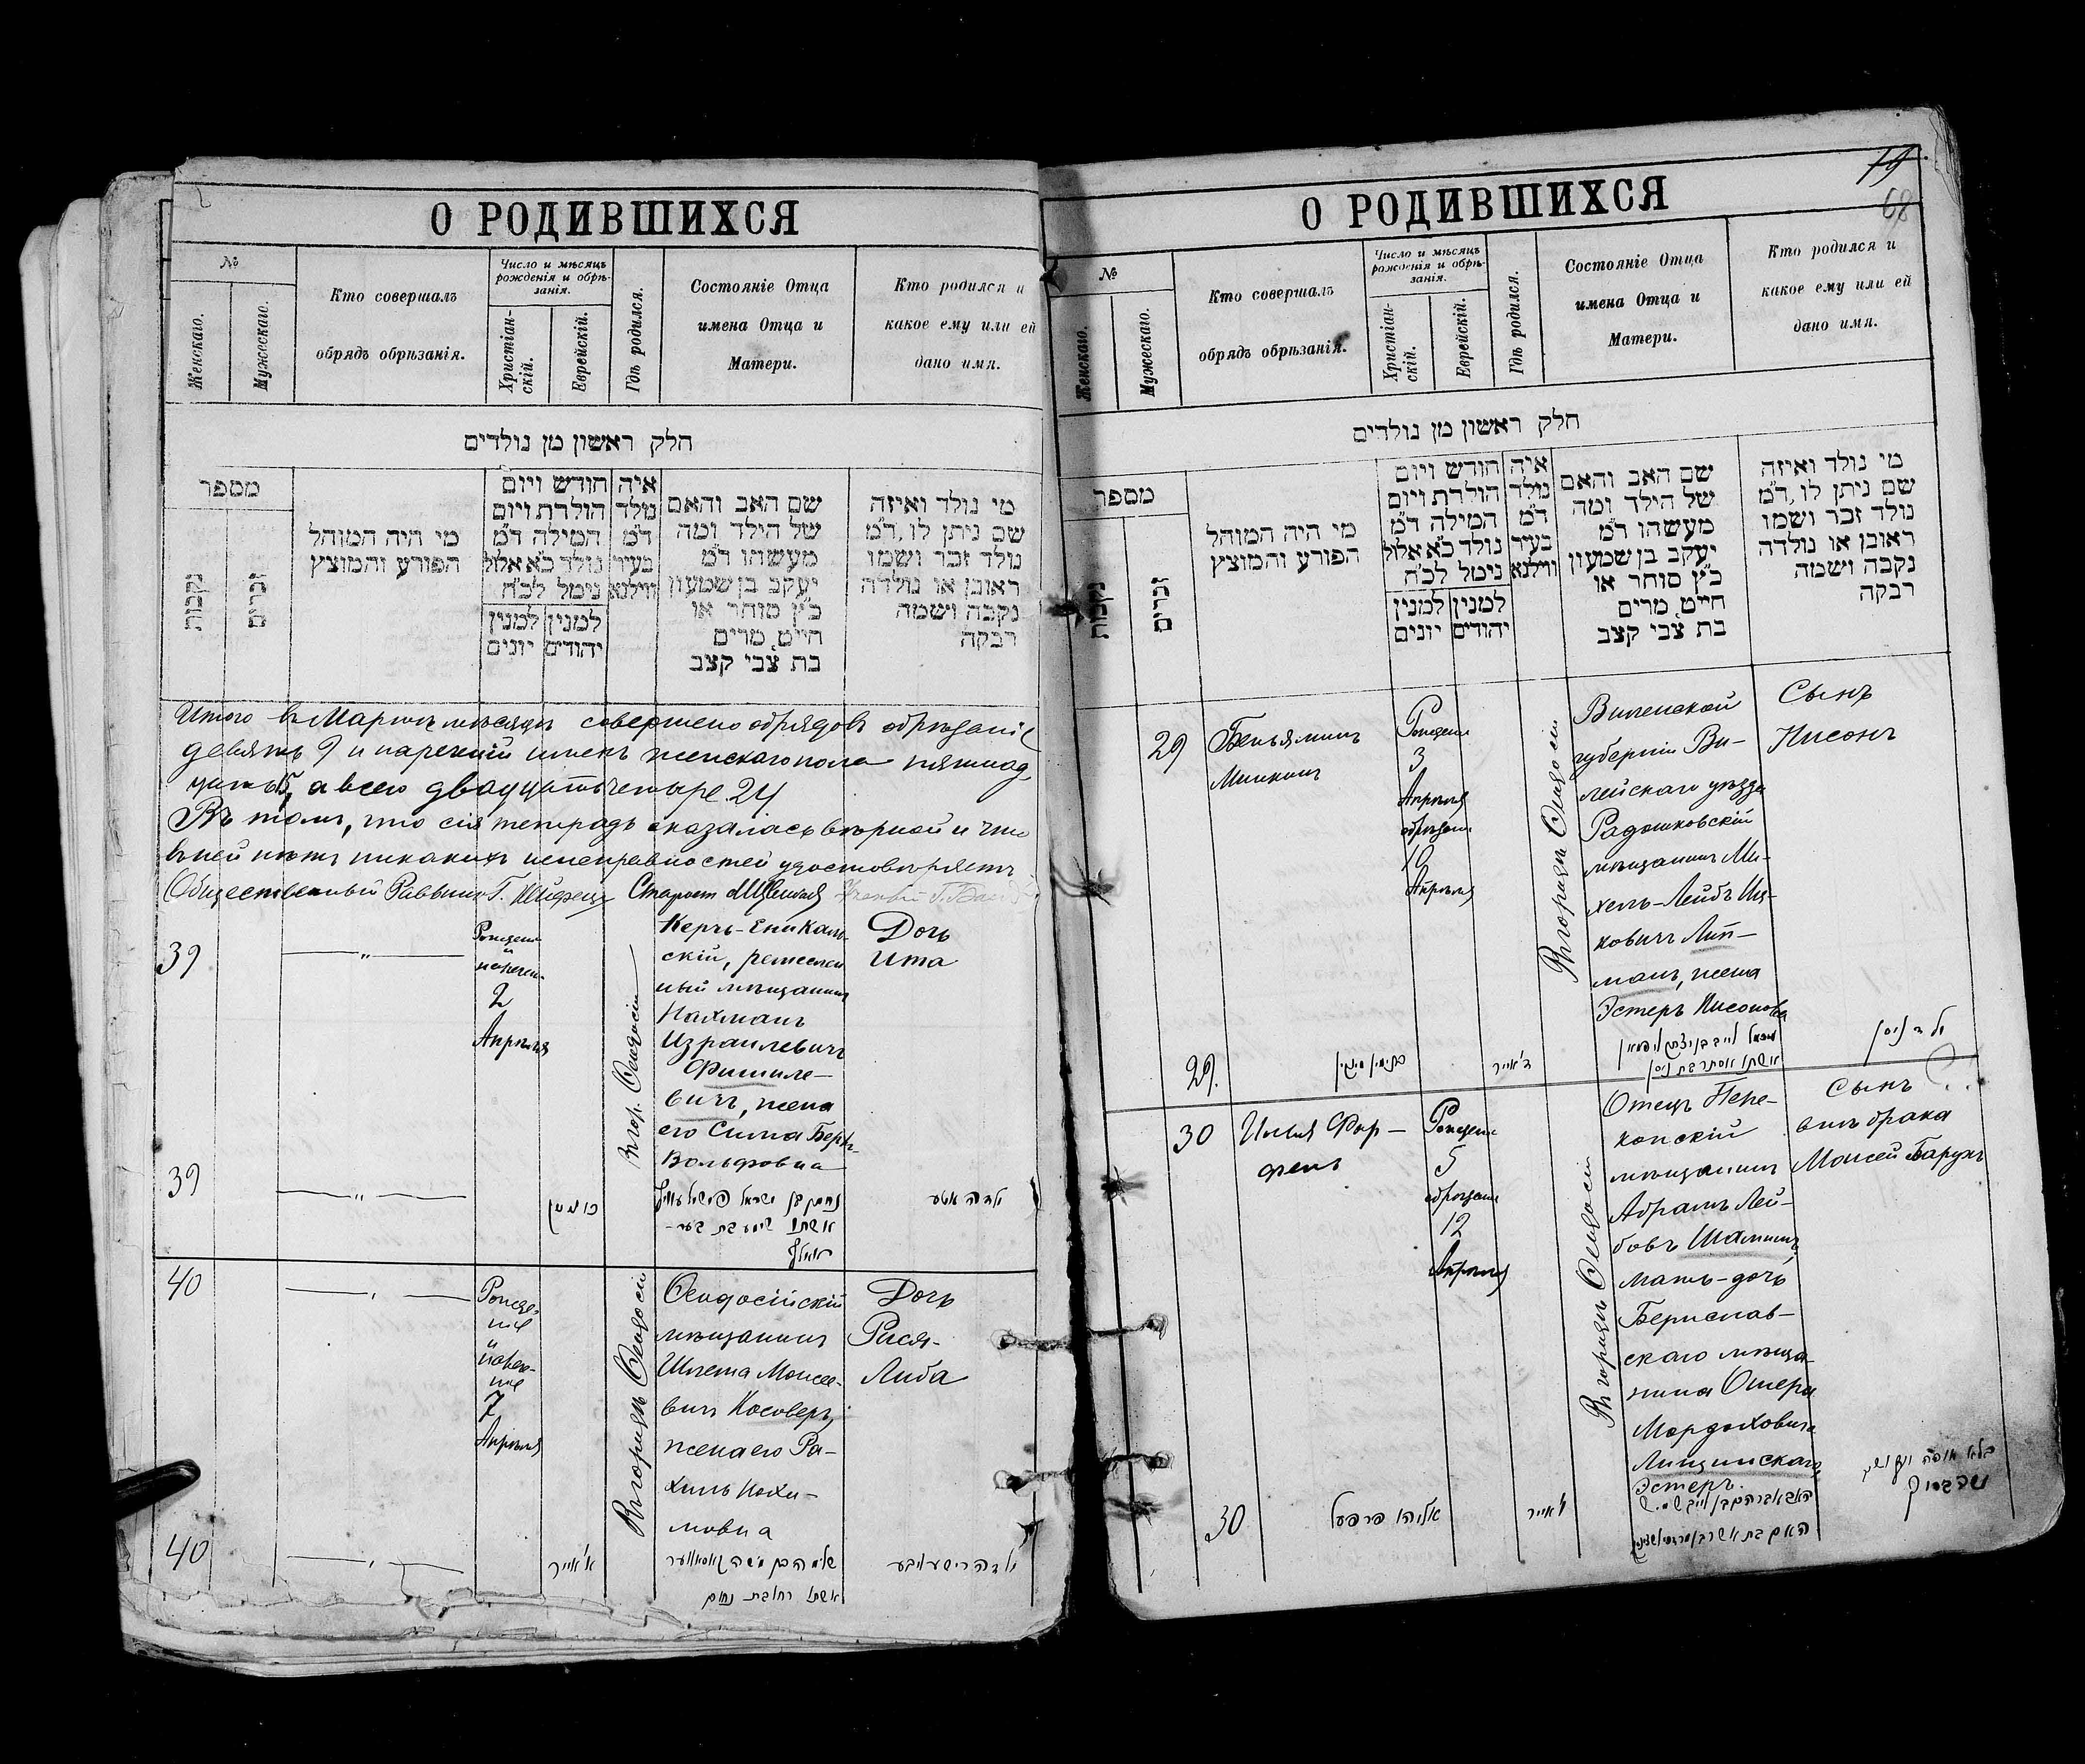 О РОДИВШИХСЯ
№
Женскаго.
Мужескаго.
Кто совершалъ
обрядъ обрѣзанія.
Число и мѣсяцъ
рожденія и обрѣ-
занія.
Христіан-
скій.
Еврейскій.
Гдѣ родился.
Состояніе Отца
имена Отца и
Матери.
Кто родился и
какое ему или ей
дано имя.
חלק ראשון מן נולדים
מספר
נקבות
זכרים
מי היה המוהל
הפורע והמוצץ
חודש ויום
הולדת ויום
המילה ד״מ
נולד כ״א אלול
נימל לכ״ח
למנין
יונים
למנין
יהודים
איה
נולד
ד״מ
בעיר
ווילנא
שם האב והאם
של הילד ומה
מעשהו ד״מ
יעקב בן שמעון
כ״ץ סוחר או
חייט, מרים
בת צבי קצב
מי נולד ואיזה
שם ניתן לו, ד״מ
נולד זכר ושמו
ראובן או נולדה
נקבה ושמה
רבקה
Итого въ Мартѣ мѣсяцѣ совершено обрядовъ обрѣзанія
девять 9 и нареченій именъ женскаго пола пятнад
цать 15, а всего двадцать четыре 24
Въ томъ, что сія тетрадь оказалась вѣрной и что
въ ней нѣтъ никакихъ неисправностей удостовѣряетъ
Общественный Раввинъ Г. Староста Ученый Г.
39
Рожденіе
и
нареч.
2
Апрѣля
Въ гор. Ѳеодосіи
Керчь-Еникаль-
скій, ремеслен
ный мѣщанинъ
Нахманъ
Израилевичъ
Фишиле-
вичъ, жена
его Сима Беръ-
Вольфовна
Дочь
Ита
39
נחמן בן ישראל פישילעוויץ
אשתו סימע בת בער-
וואלף
ילדה איטע
40
Рожде-
ніе
и
нарече-
ніе
7
Апрѣля
Въ городѣ Ѳеодосіи
Ѳеодосійскій
мѣщанинъ
Шлема Моисее-
вичъ Косоверъ,
жена его Ра-
хиль Нохи-
мовна
Дочь
Рися-
Либа
40
א' אייר
שלמה בן משה קאסאווער
אשתו רחל בת נחום
ילדה רישע ליבע
О РОДИВШИХСЯ
19
68
№
Женскаго.
Мужескаго.
Кто совершалъ
обрядъ обрѣзанія.
Число и мѣсяцъ
рожденія и обрѣ-
занія.
Христіан-
скій.
Еврейскій.
Гдѣ родился.
Состояніе Отца
имена Отца и
Матери.
Кто родился и
какое ему или ей
дано имя.
חלק ראשון מן נולדים
מספר
נקבות
זכרים
מי היה המוהל
הפורע והמוצץ
חודש ויום
הולדת ויום
המילה ד״מ
נולד כ״א אלול
נימל לכ״ח
למנין
יונים
למנין
יהודים
איה
נולד
ד״מ
בעיר
ווילנא
שם האב והאם
של הילד ומה
מעשהו ד״מ
יעקב בן שמעון
כ״ץ סוחר או
חייט, מרים
בת צבי קצב
מי נולד ואיזה
שם ניתן לו, ד״מ
נולד זכר ושמו
ראובן או נולדה
נקבה ושמה
רבקה
29
Беньяминъ
Минкинъ
Рожденіе
3
Апрѣля
обрѣзаніе
10
Апрѣля
Въ городѣ Ѳеодосіи
Виленской
губерніи Ви-
лейскаго уѣзда
Радошковскій
мѣщанинъ Ми-
хель-Лейбъ Иц-
ковичъ Лип-
манъ, жена
Эстеръ Нисонова
Сынъ
Нисонъ
29.
בנימין מינקין
ד' אייר
מיכאל לייב בן יצחק ליפמאן
אשתו אסתר בת ניסן
ילד ניסן
30
Илья Фар-
фель
Рожденіе
5
обрѣзаніе
12
Апрѣля
Въ городѣ Ѳеодосіи
Отецъ Пере-
копскій
мѣщанинъ
Абрамъ Лей-
бовъ Шамишъ,
мать-дочь
Берислав-
скаго мѣща-
нина Ошера
Мордоховича
Лищинскаго
Эстеръ.
Сынъ
внѣ брака
Моисей Барухъ
30
אליהו פרפעל
ו' אייר
האב אברהם בן לייב
האם בת אשר בן מרדכי
בלא חופה וקדושין
משה ברוך